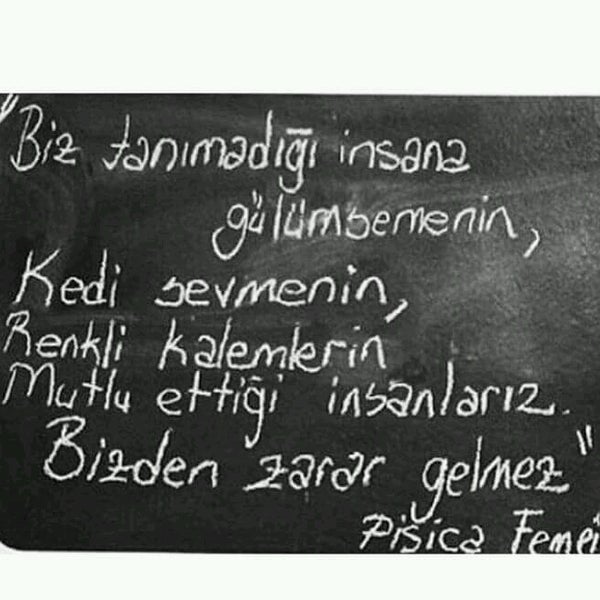 "Biz tanımadığı insana
gülümsemenin,
Kedi sevmenin,
Renkli kalemlerin
Mutlu ettiği insanlarız.
Bizden zarar gelmez"
Pisica Femei